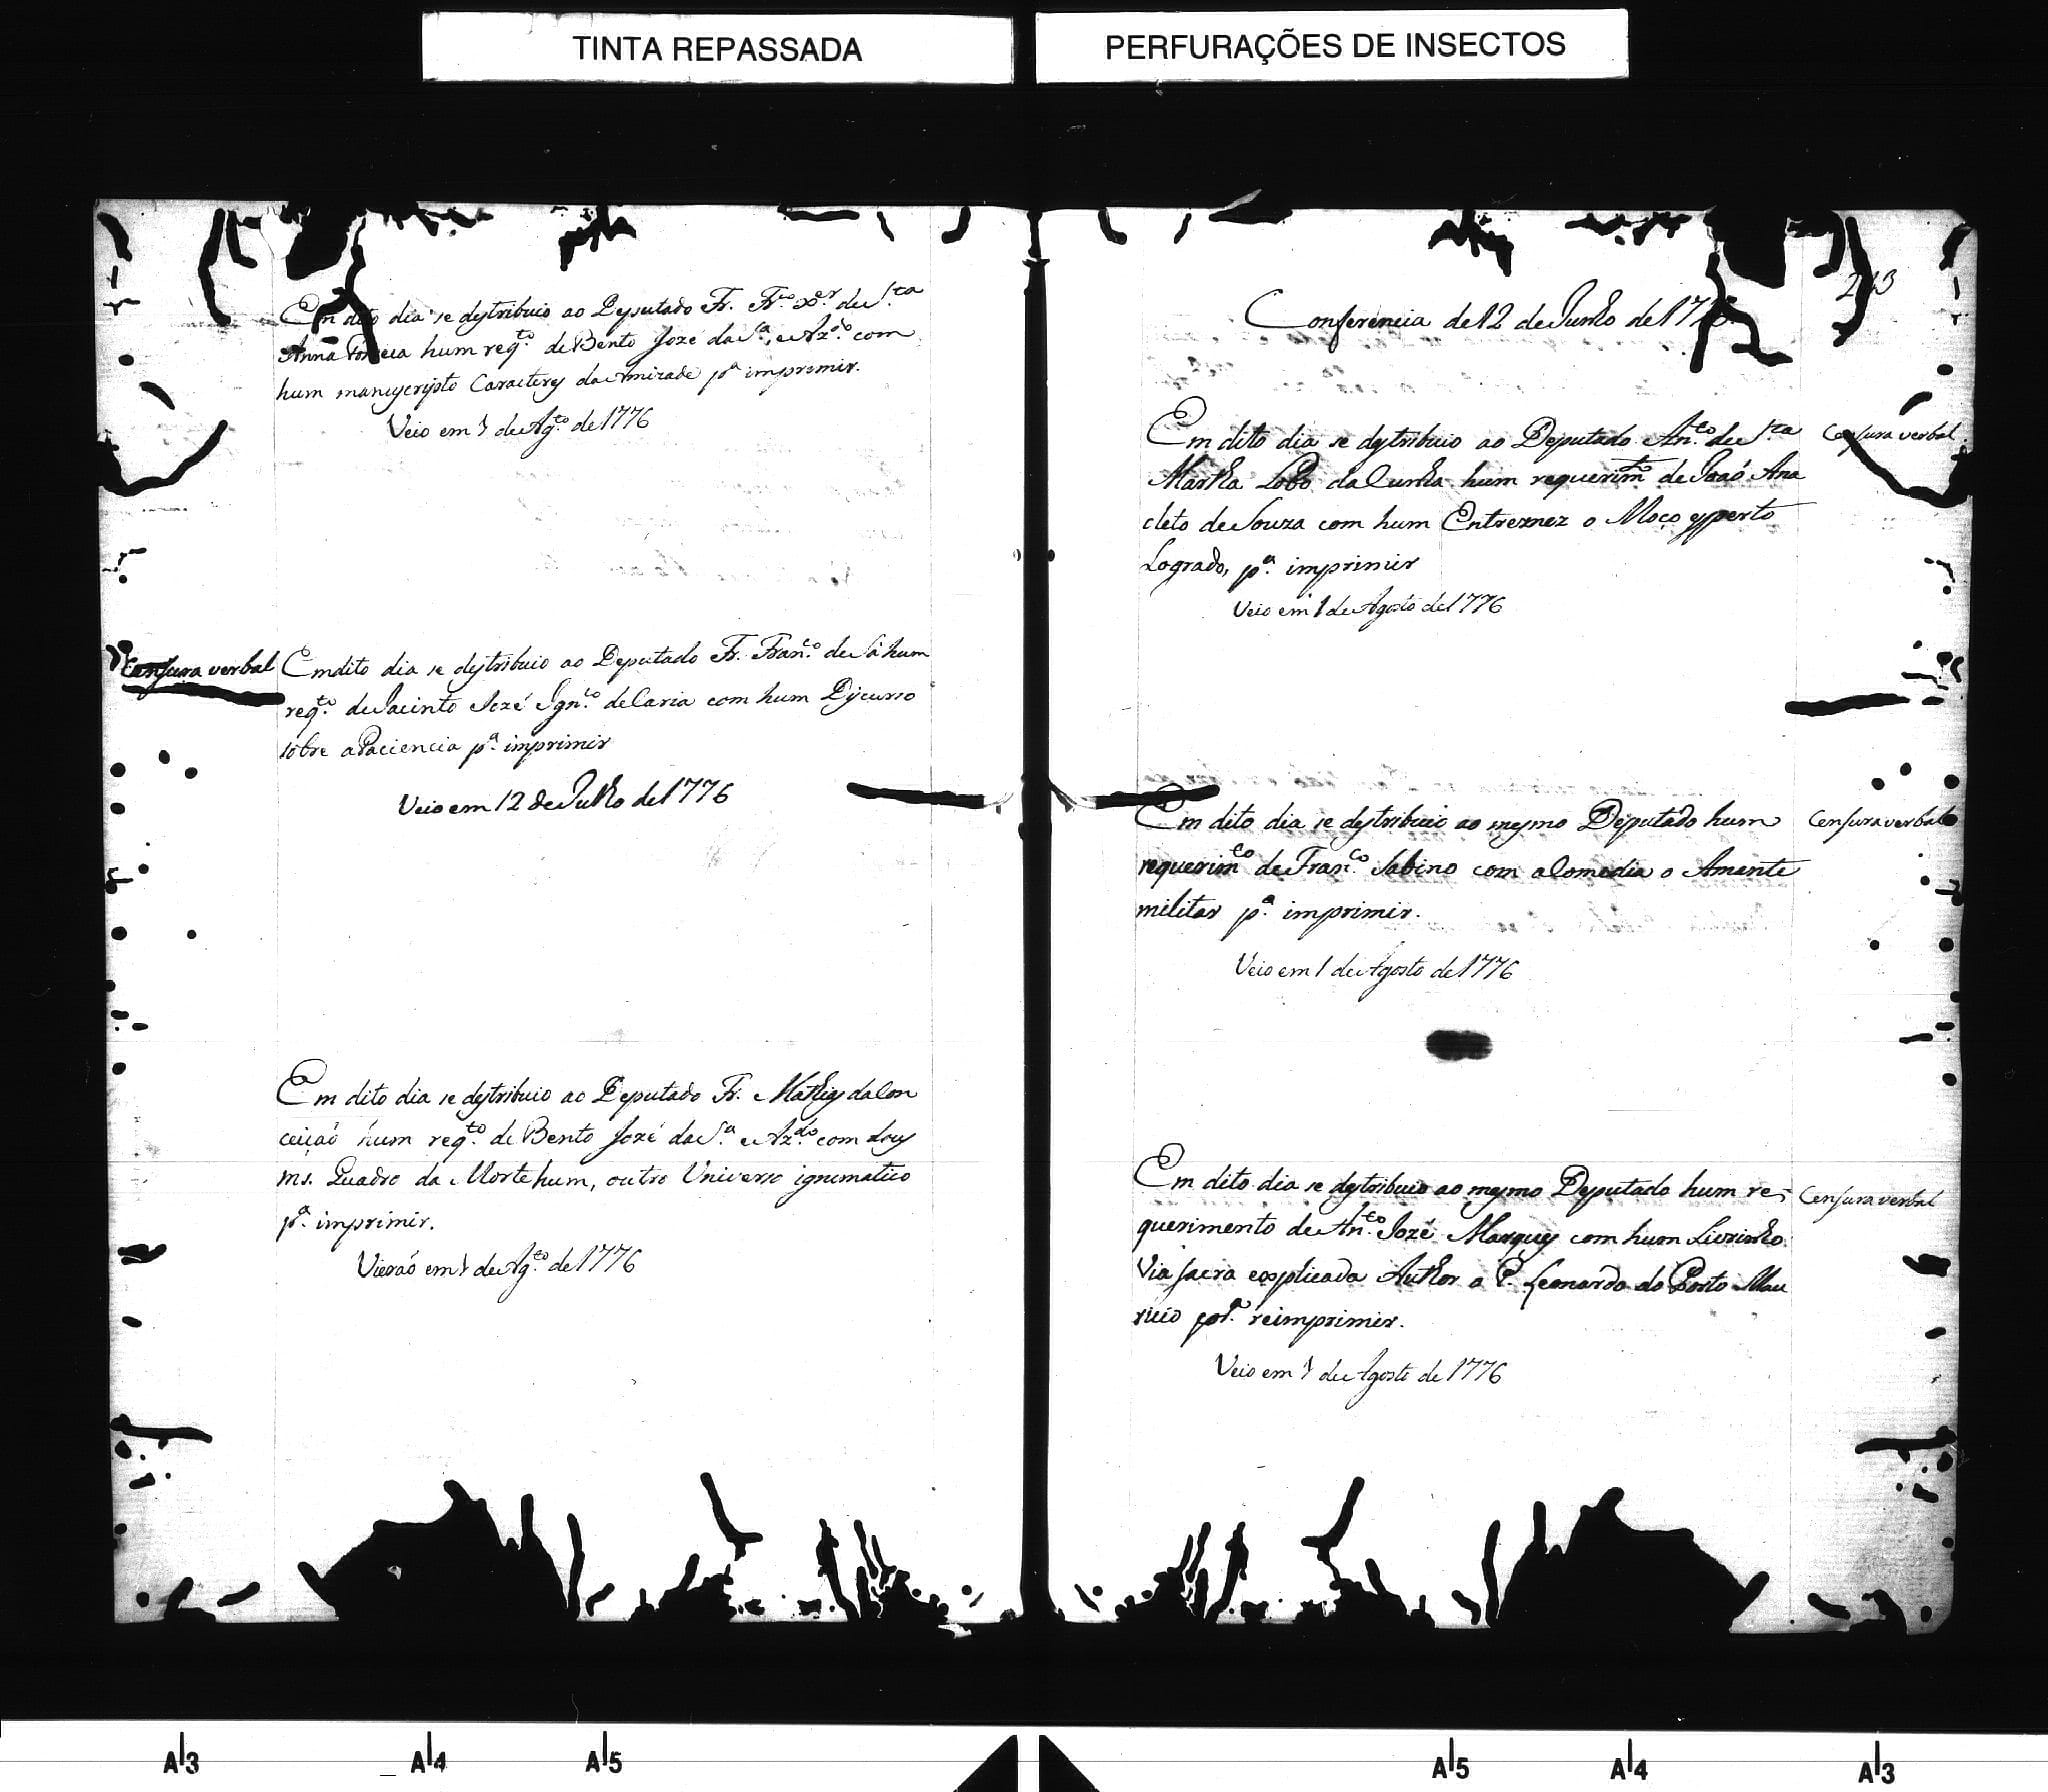 TINTA REPASSADA
PERFURAÇÕES DE INSECTOS
Em dito dia se destribuio ao Deputado Fr. Fr.co X.er de S.ta
Anna Fonseca hum req.to de Bento Jozé da S.a e Az.do com
hum manuscripto Caracteres da Amizade p.a imprimir.
Veio em 1 de Ag.to de 1776
Censura verbal
Em dito dia se destribuio ao Deputado Fr. Fran.co de Sá hum
req.to de Jacinto Jozé Ign.co de Caria com hum Discurso
sobre a Paciencia p.a imprimir
Veio em 12 de Julho de 1776
Em dito dia se destribuio ao Deputado Fr. Mathias da Con
ceiçaõ hum req.to de Bento Jozé da S.a e Az.do com dous
ms. Quadro da Morte hum, outro Universo ignimatico
p.a imprimir.
Vieraõ em 1 de Ag.to de 1776
213
Conferencia de 12 de Junho de 1776
Em dito dia se destribuio ao Deputado An.to de S.ta
Martha Lobo da Cunha hum requerim.to de Joaõ Ana
cleto de Souza com hum Entremez o Moço esperto
Logrado, p.a imprimir
Veio em 1 de Agosto de 1776
Censura verbal
Em dito dia se destribuio ao mesmo Deputado hum
requerim.to de Fran.co Sabino com a Comedia o Amante
militar p.a imprimir.
Veio em 1 de Agosto de 1776
Censura verbal
Em dito dia se destribuio ao mesmo Deputado hum re-
querimento de An.to Jozé Marques com hum Livrinho
Via sacra explicada Author o P. Leonardo do Porto Mau
ricio p.a reimprimir.
Veio em 1 de Agosto de 1776
Censura verbal
A3 A4 A5 A5 A4 A3